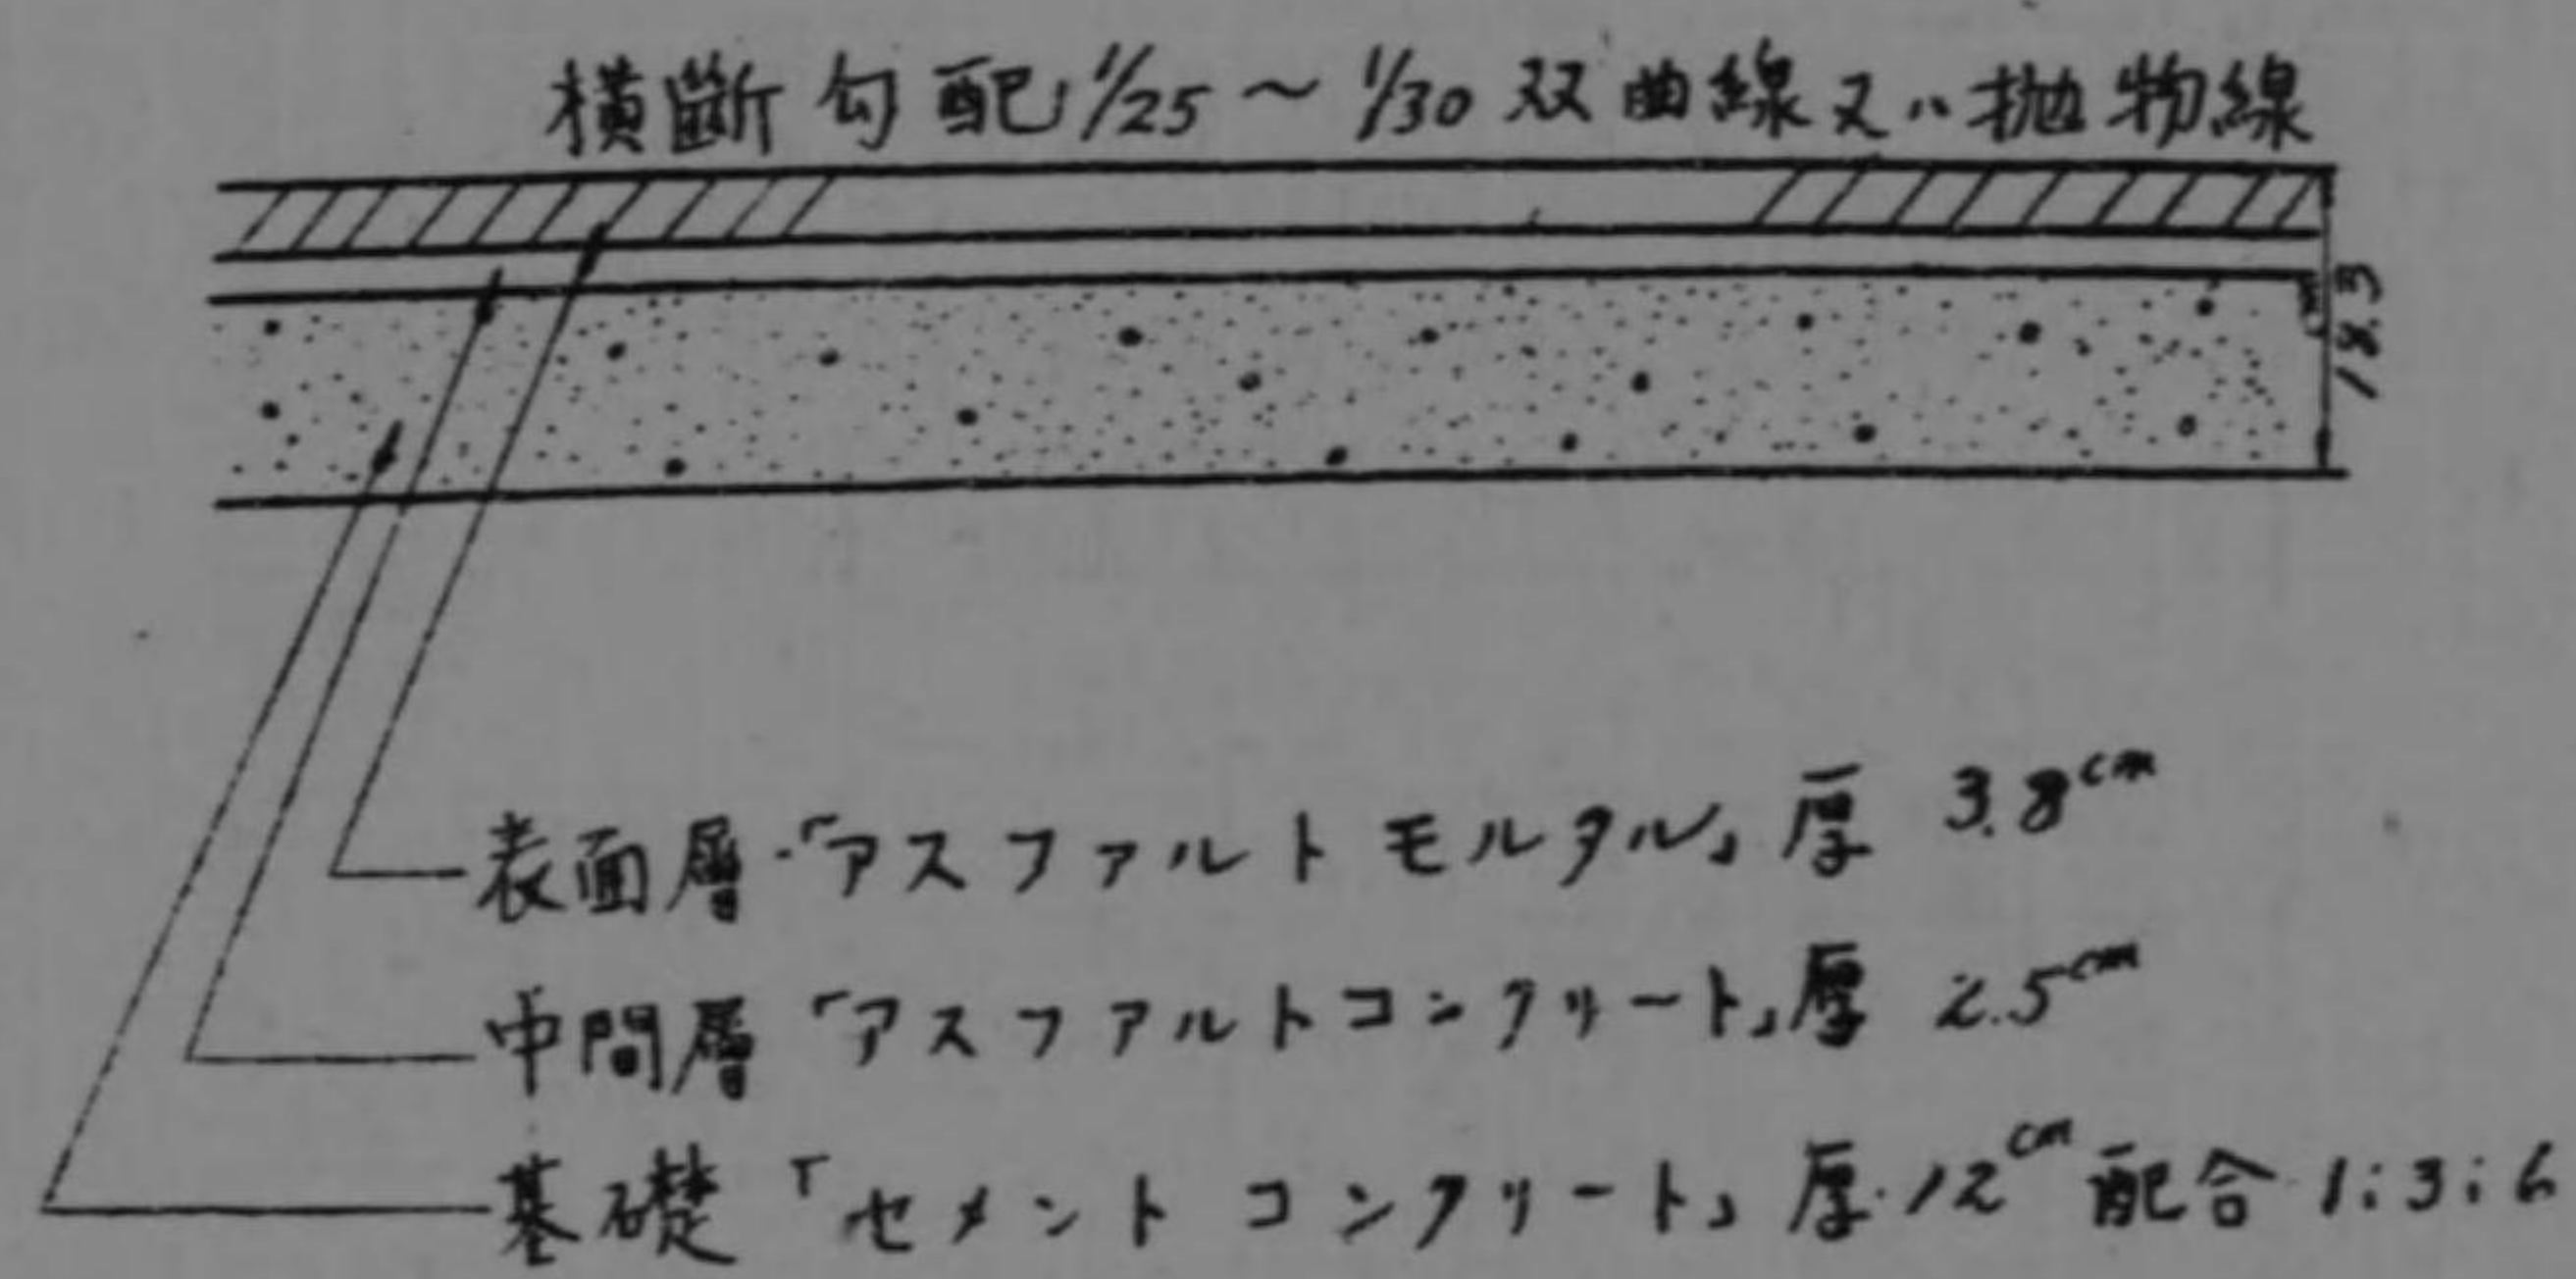 横斷勾配 1/25～1/30 双曲線又ハ抛物線
18.3cm
表面層「アスファルトモルタル」厚 3.8cm
中間層「アスファルトコンクリート」厚 2.5cm
基礎「セメントコンクリート」厚 12cm 配合 1:3:6